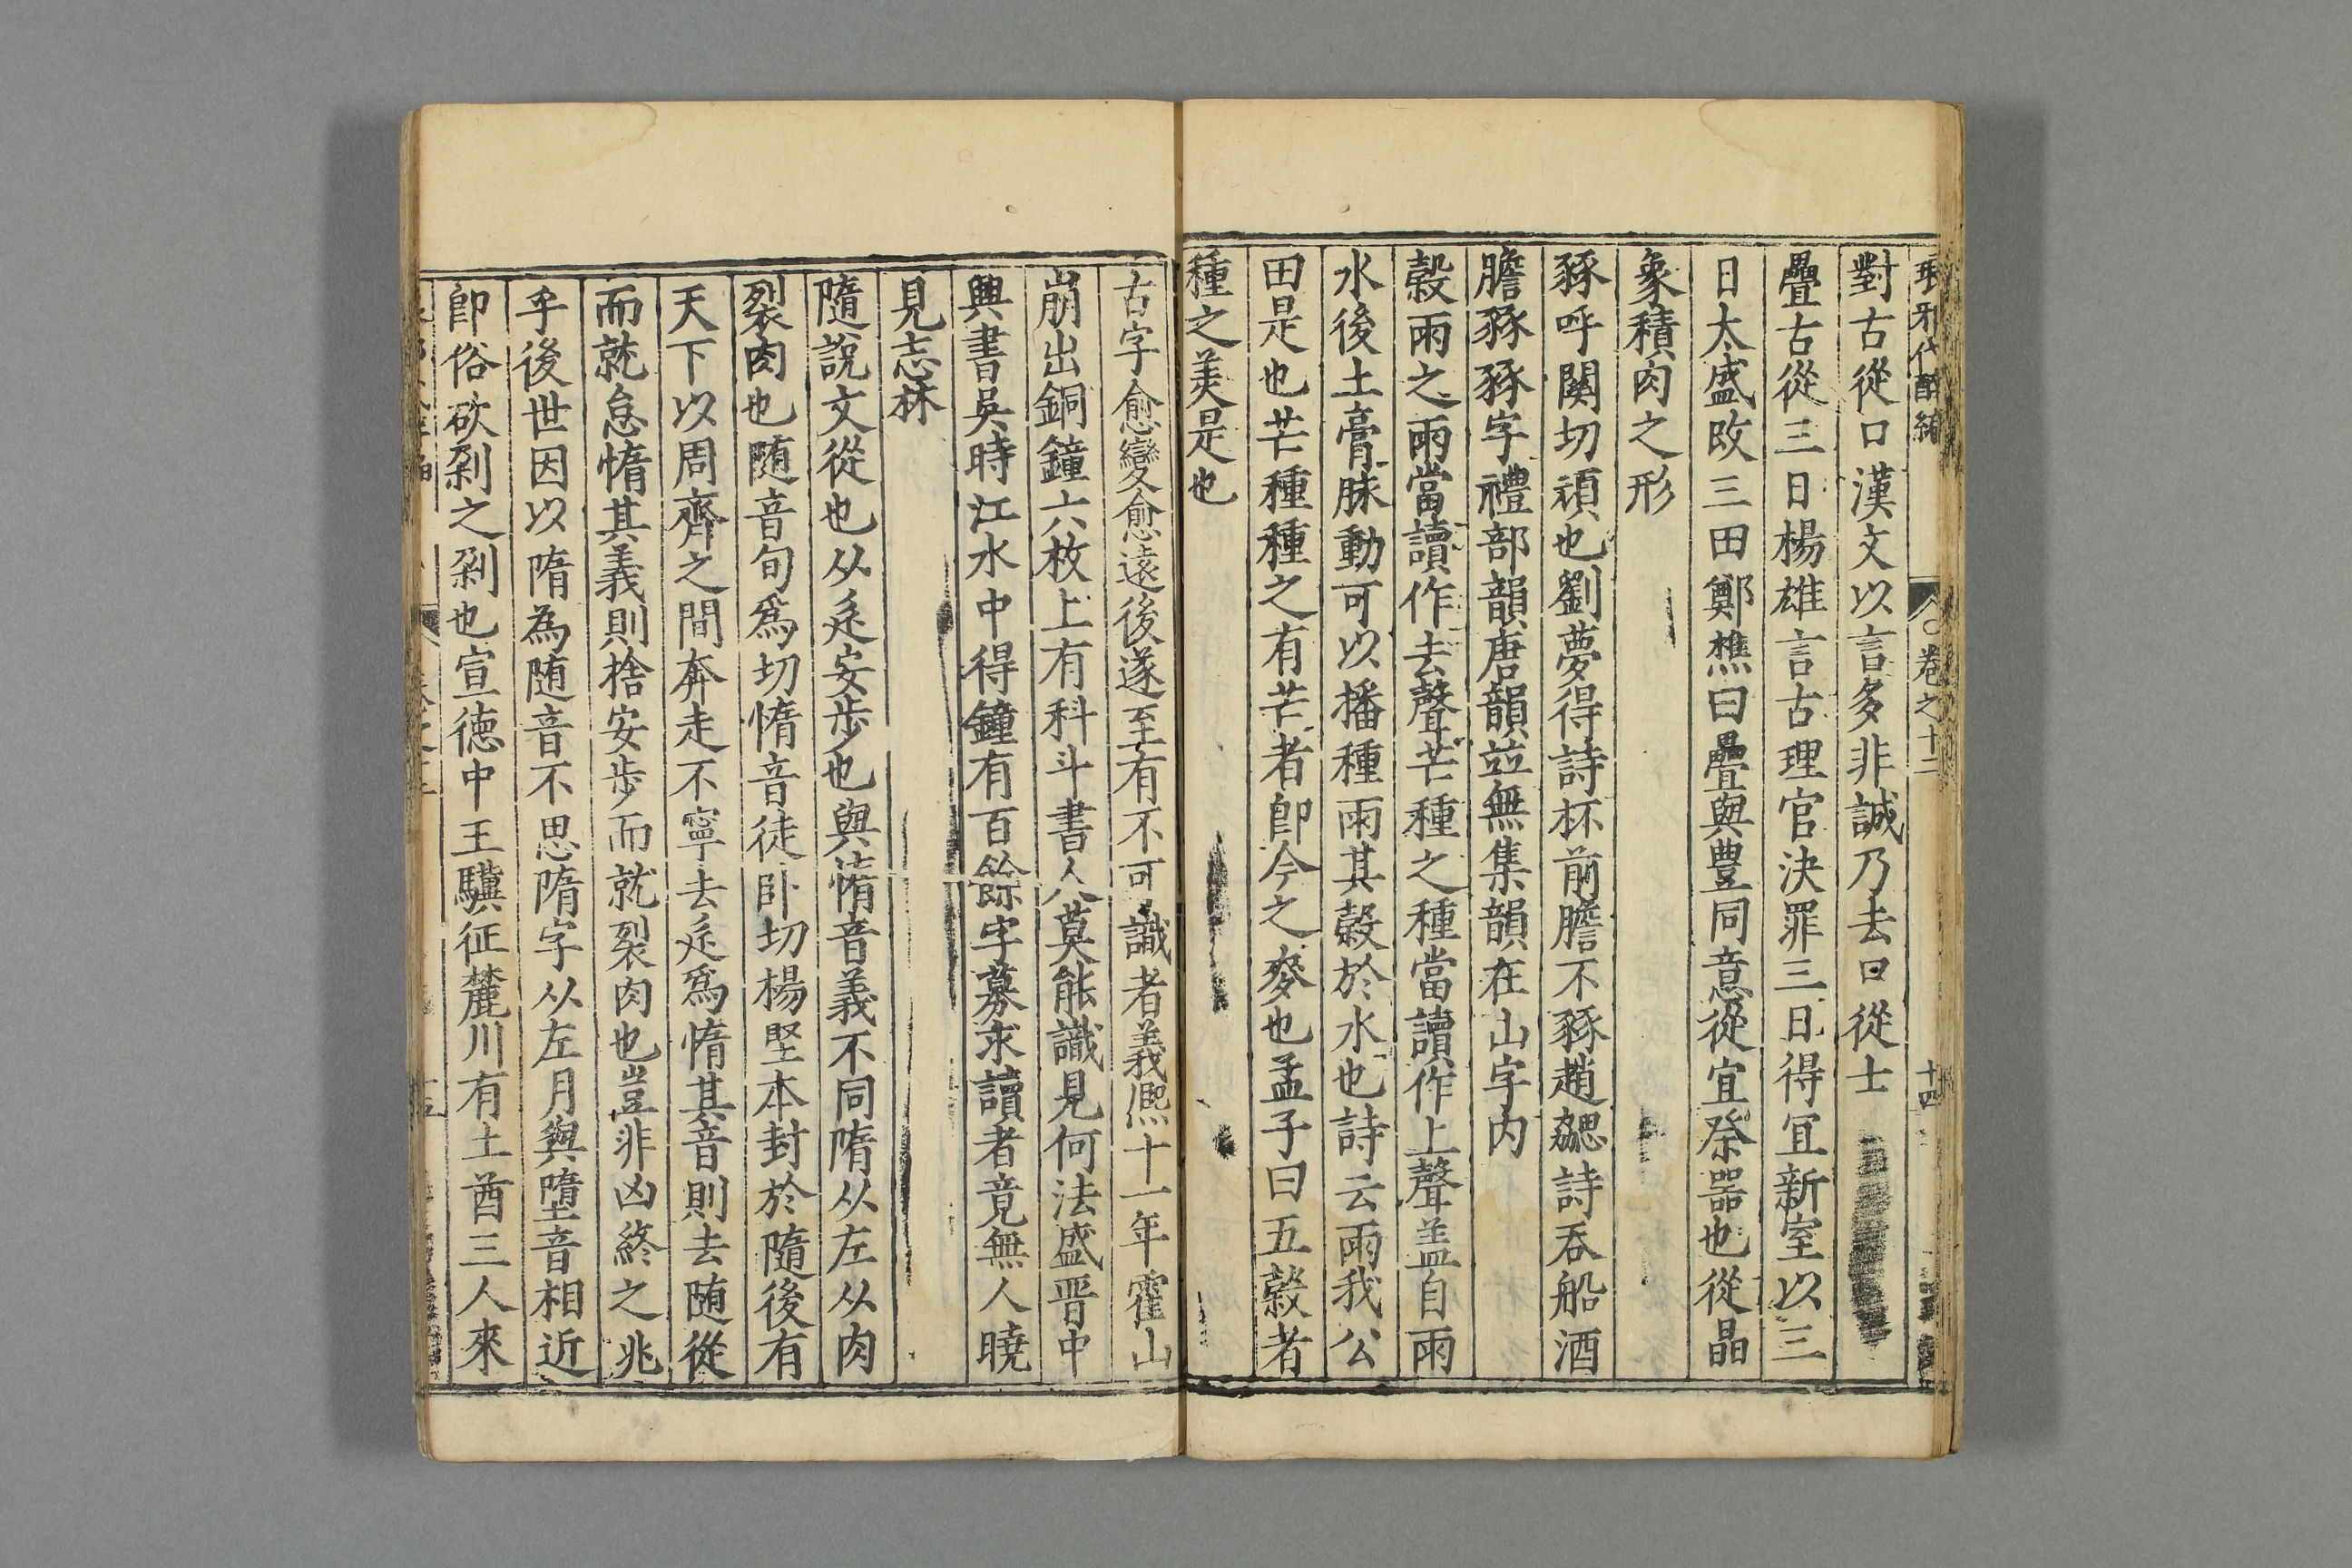 琅邪代醉編 卷之十二 十四
對古從口漢文以言多非誠乃去口從士
疊古從三日楊雄言古理官決罪三日得宜新室以三
日太盛改三田鄭樵曰疊與豐同意從宜祭器也從晶
象積肉之形
豩呼關切頑也劉夢得詩杯前膽不豩趙勰詩吞船酒
膽豩豩字禮部韻唐韻竝無集韻在山字內
穀雨之雨當讀作去聲芒種之種當讀作上聲盖自雨
水後土膏脉動可以播種雨其穀於水也詩云雨我公
田是也芒種種之有芒者卽今之麥也孟子曰五穀者
種之美是也
古字愈變愈遠後遂至有不可識者義熈十一年霍山
崩出銅鐘六枚上有科斗書人莫能識見何法盛晋中
興書吳時江水中得鐘有百餘字募求讀者竟無人曉
見志林
隨說文從也从辵安步也與惰音義不同隋从左从肉
裂肉也随音旬爲切惰音徒卧切楊堅本封於隨後有
天下以周齊之間奔走不寧去辵爲惰其音則去随從
而就怠惰其義則捨安步而就裂肉也豈非凶終之兆
乎後世因以隋為随音不思隋字从左月與墮音相近
卽俗砍剁之剁也宣徳中王驥征麓川有土酋三人來